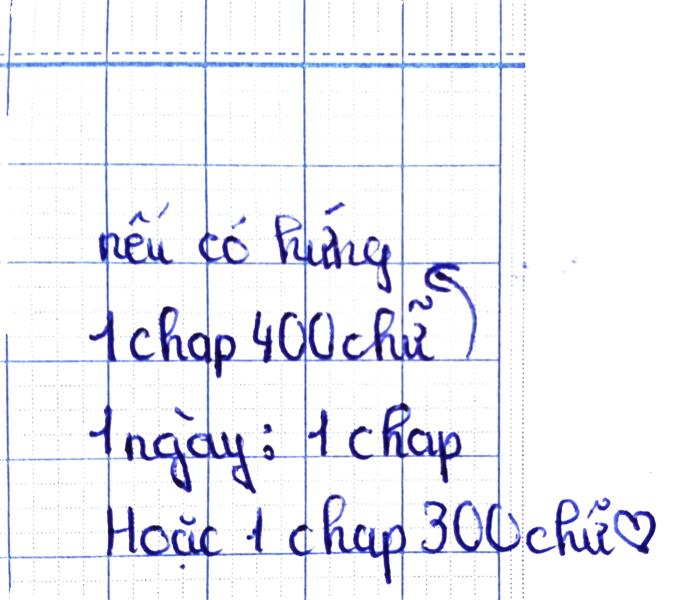 nếu có hứng
1 chap 400 chữ
1 ngày: 1 chap
Hoặc 1 chap 300 chữ♡